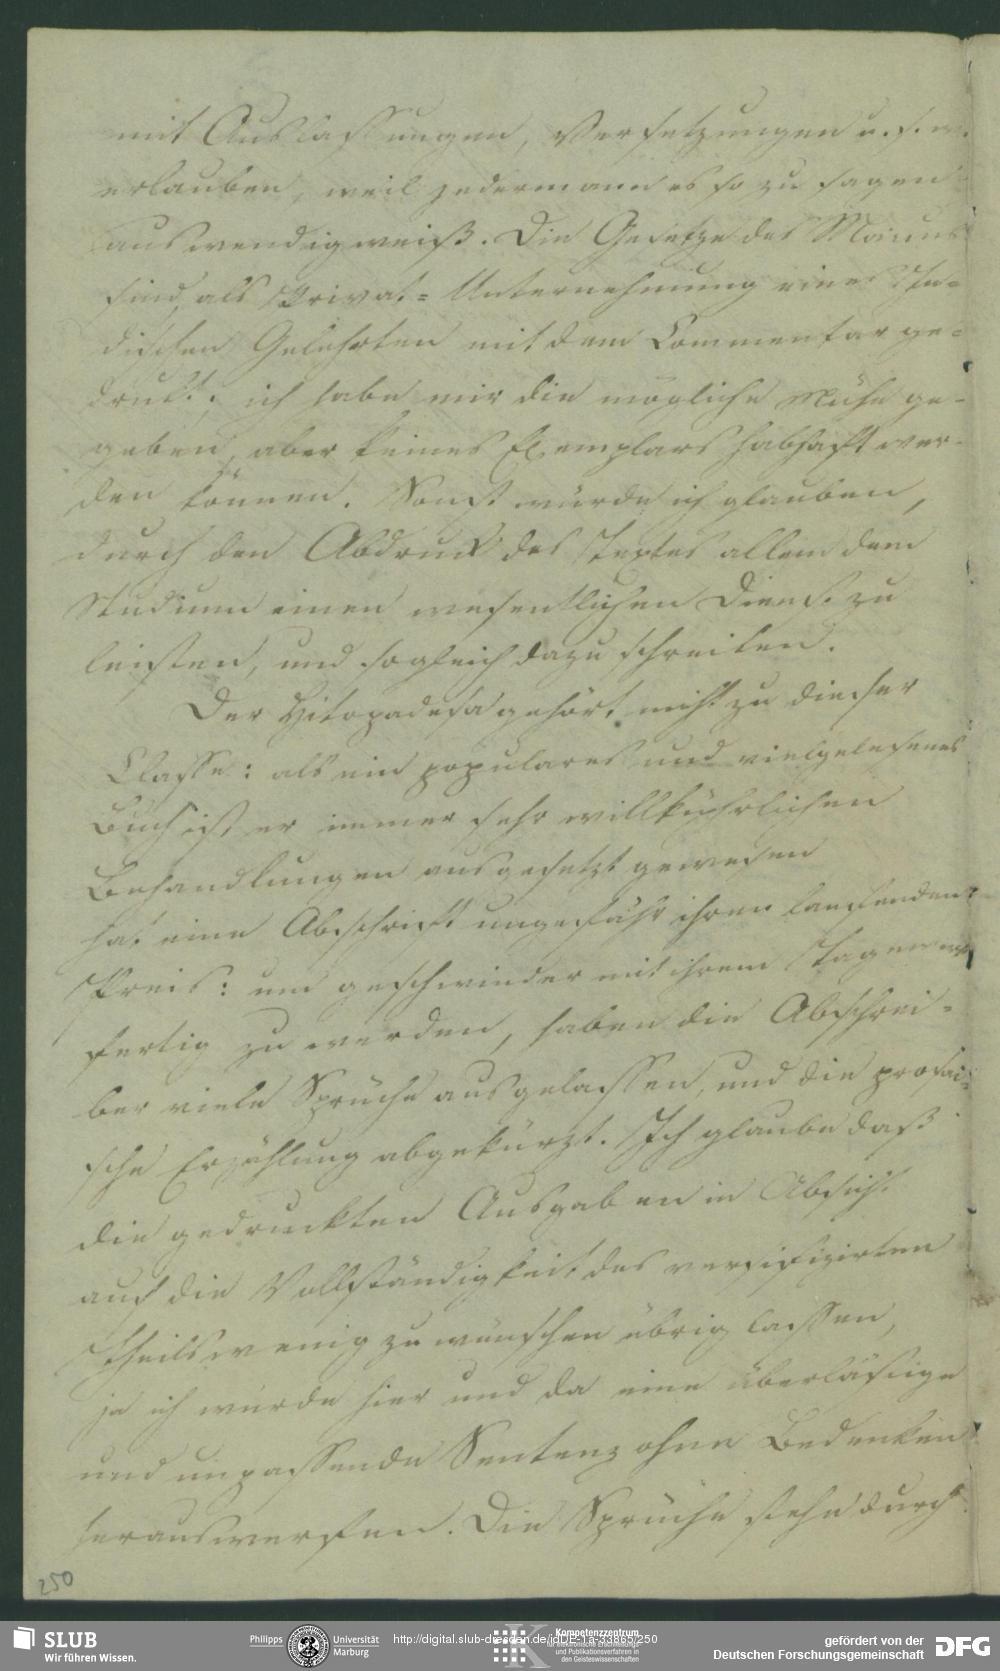 mit Auslassungen, Versetzungen u. s. w.
erlauben, weil jedermann es so zu sagen
auswendig weiß. Die Gesetze des Manus
sind als Privat-Unternehmung eines In-
dischen Gelehrten mit dem Commentar ge-
druckt; ich habe mir die mögliche Mühe ge-
geben, aber keines Exemplars habhaft wer-
den können. Sonst würde ich glauben,
durch den Abdruck des Textes allein dem
Studium einen wesentlichen Dienst zu
leisten, und sogleich dazu schreiten.
Der Hitopadesa gehört nicht zu dieser
Classe: als ein populares und vielgelesenes
Buch ist er immer sehr willkührlichen
Behandlungen ausgesetzt gewesen
hat eine Abschrift ungefähr ihren laufenden
Preis: um geschwinder mit ihrem Tagewerk
fertig zu werden, haben die Abschrei-
ber viele Sprüche ausgelassen, und die prosai-
sche Erzählung abgekürzt. Ich glaube daß
die gedruckten Ausgaben in Absicht
auf die Vollständigkeit des versifizirten
Theils wenig zu wünschen übrig lassen,
ja ich würde hier und da eine überlästige
und unpassende Sentenz ohne Bedenken
herauswerfen. Die Sprüche stehn durch
250
SLUB
Wir führen Wissen.
Philipps Universität
Marburg
http://digital.slub-dresden.de/idDE-1a-33865/250
Kompetenzzentrum
für elektronische Erschließungs-
und Publikationsverfahren in
den Geisteswissenschaften
gefördert von der
Deutschen Forschungsgemeinschaft
DFG